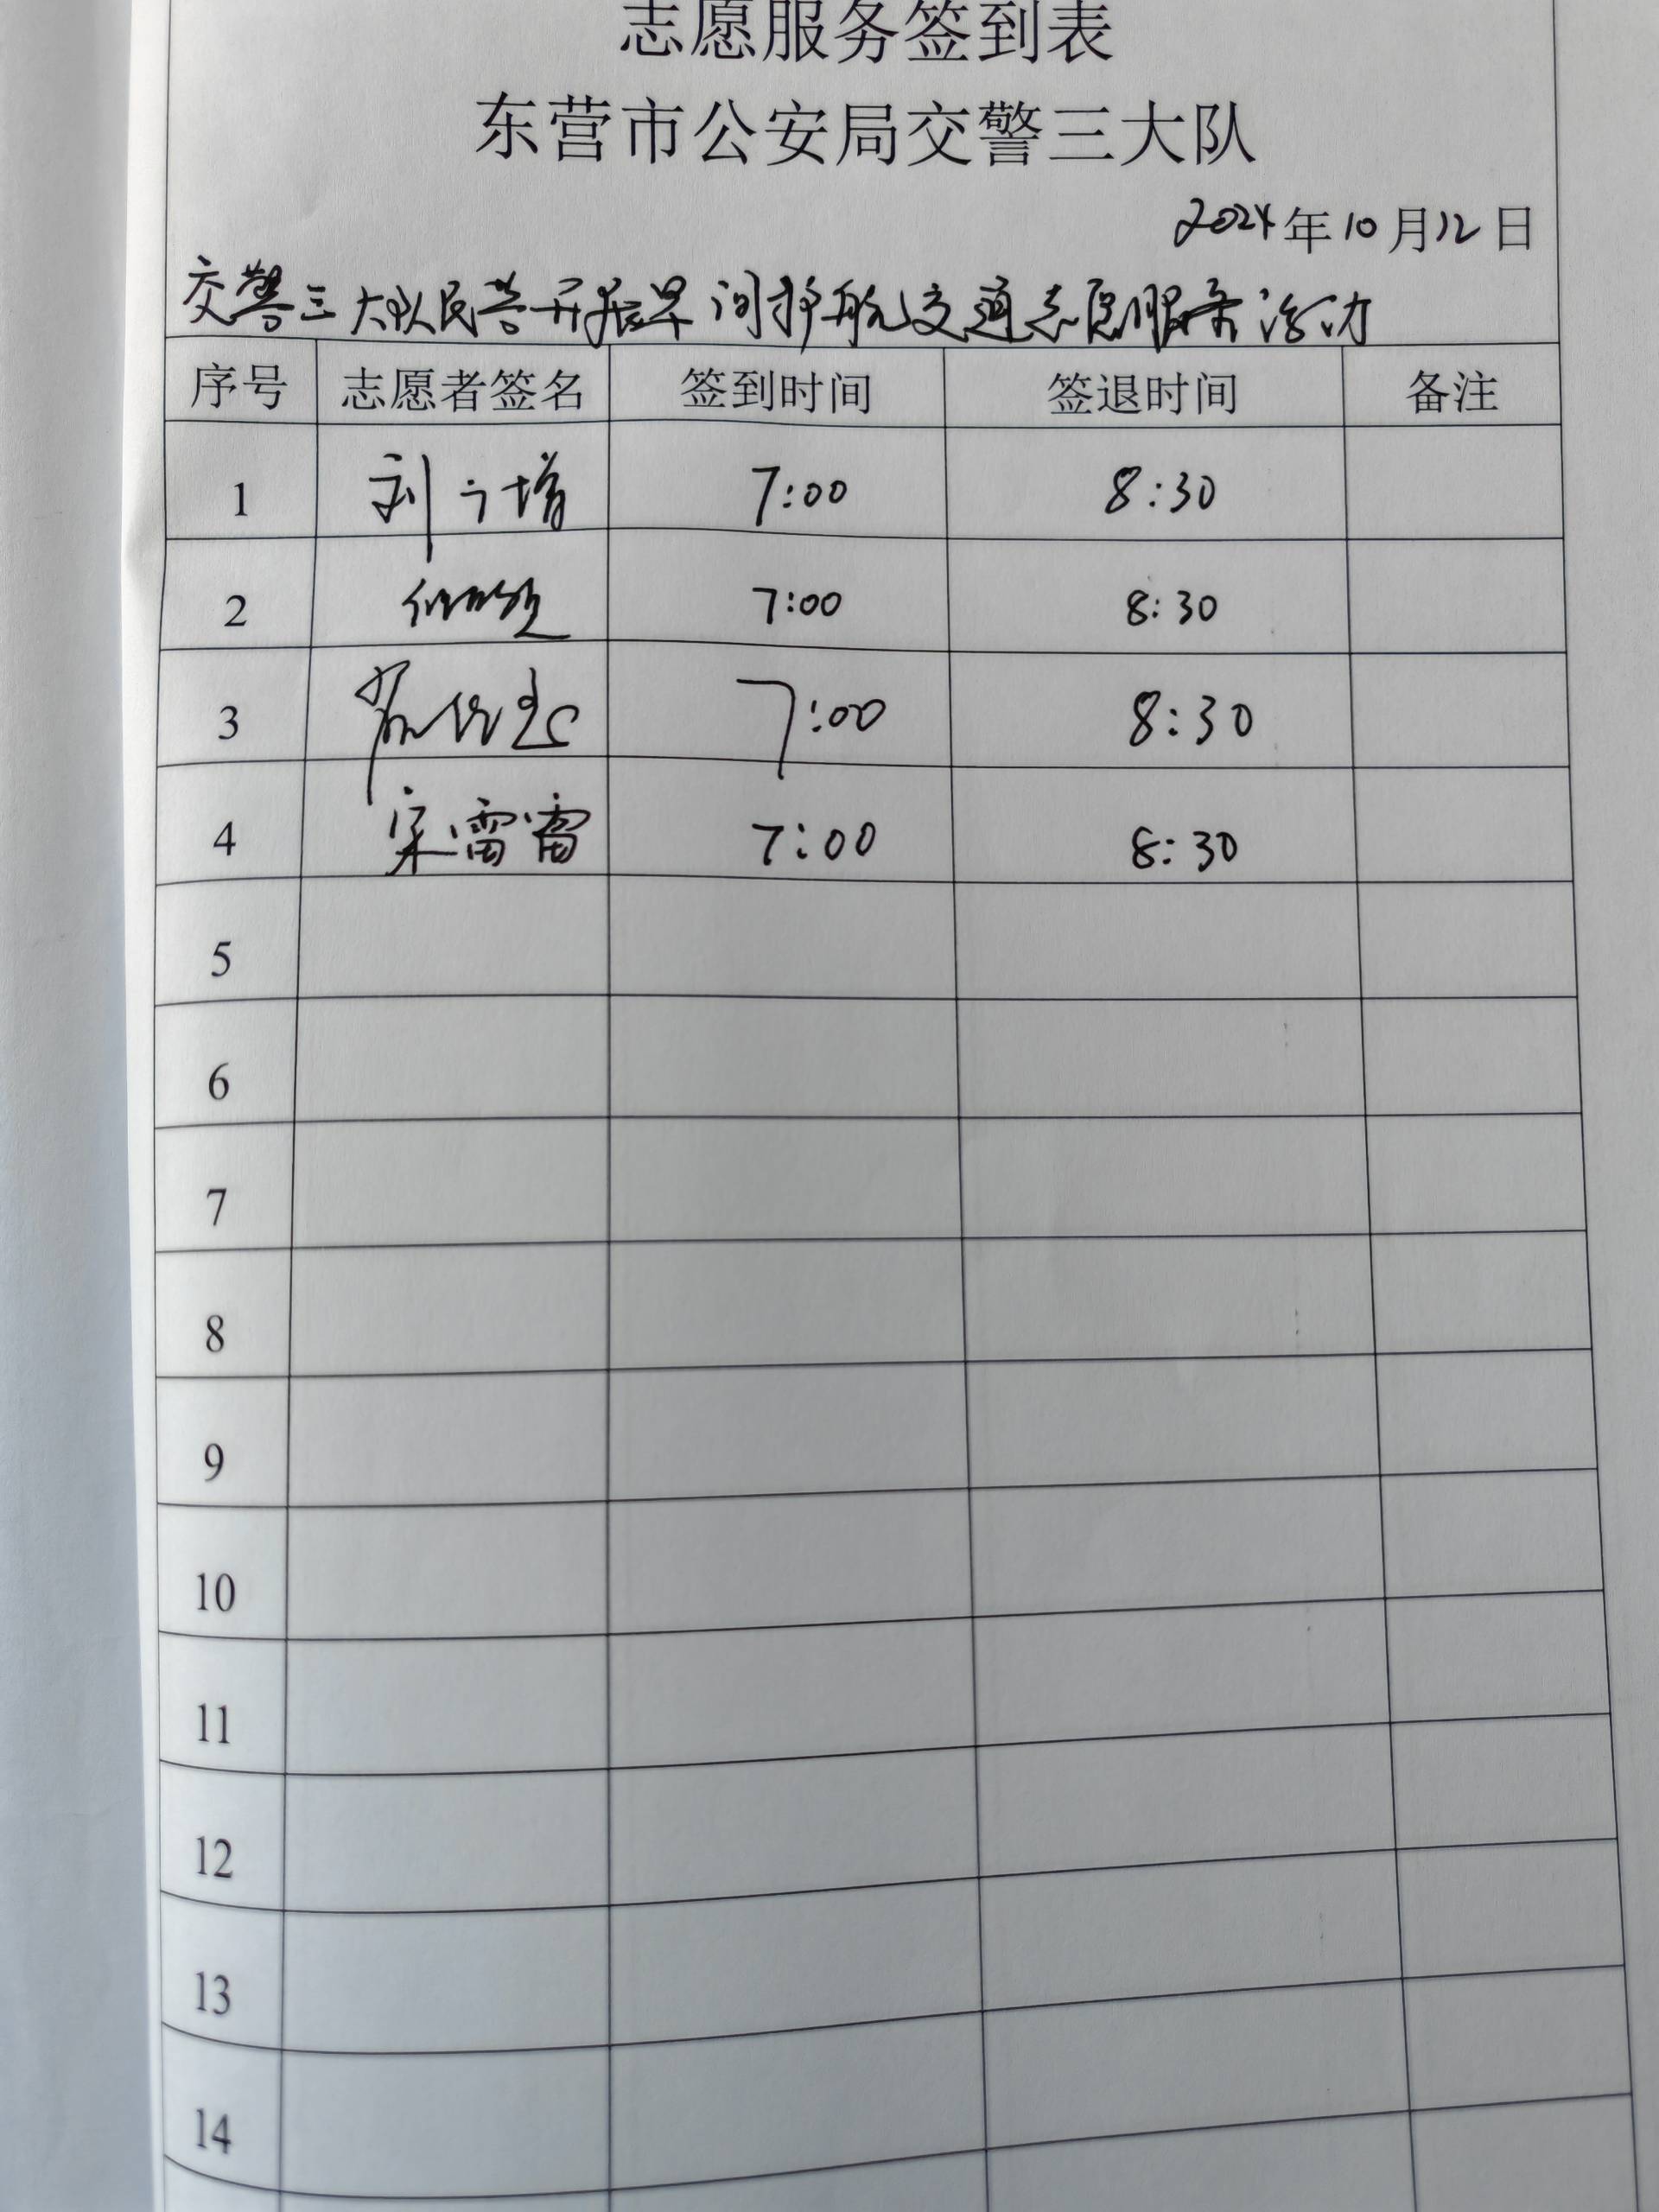 志愿服务签到表
东营市公安局交警三大队
2024年10月12日
交警三大队民警开展早间护航交通志愿服务活动
序号 志愿者签名 签到时间 签退时间 备注
1 刘广增 7:00 8:30
2 7:00 8:30
3 7:00 8:30
4 宋雷雷 7:00 8:30
5
6
7
8
9
10
11
12
13
14